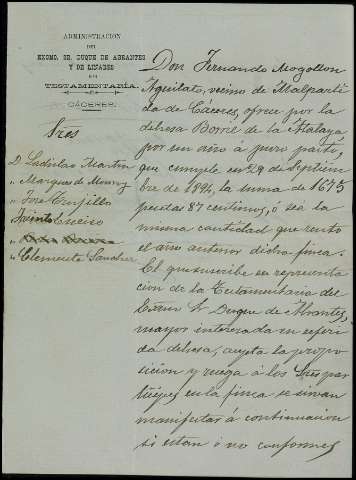 ADMINISTRACIÓN
DEL
EXCMO. SR. DUQUE DE ABRANTES
Y DE LINARES
SU
TESTAMENTARÍA.
CÁCERES.
Sres
D. Ladislao Martin
" Marques de Monroy
" Jose Trujillo
" Clemente Sanchez
Don Fernando Mogollon
vecino de Malparti-
da de Cáceres, ofrece por la
dehesa Borre de la Atalaya,
por un año á puro pasto,
que cumple en 29 de Septiem-
bre de 1894, la suma de 1675
pesetas 87 centimos, ó sea la
misma cantidad que rentó
el año anterior dicha finca.
El que suscribe en representa-
cion de la Testamentaria del
Excmo Sr Duque de Abrantes,
mayor interesado en referi-
da dehesa, acepta la propo-
sicion y ruega á los Sres par-
tícipes en la finca se sirvan
manifestar á continuacion
si estan ó no conformes